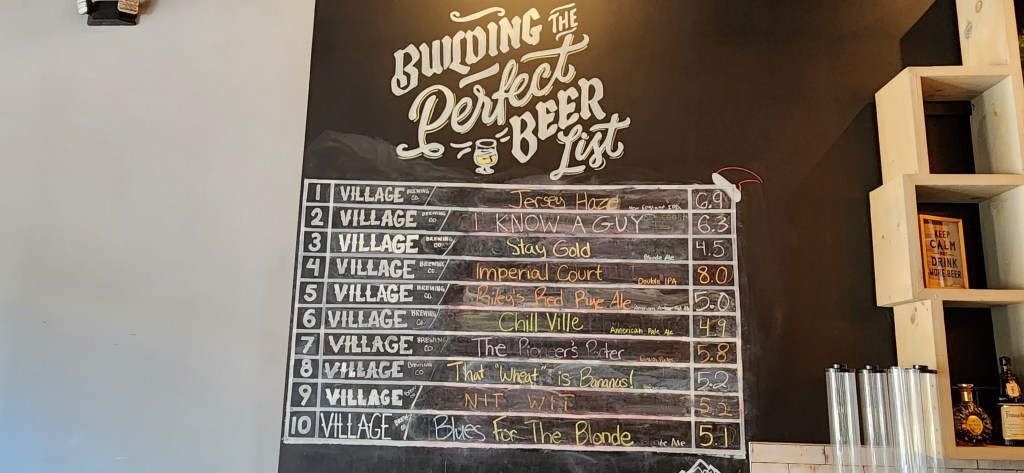 BUILDING THE
Perfect
BEER
List
1 VILLAGE BREWING CO Jersey Haze New England IPA 6.9
2 VILLAGE BREWING CO. I KNOW A GUY 6.3
3 VILLAGE BREWING CO. Stay Gold Blonde Ale 4.5
4 VILLAGE BREWING CO. Imperial Court Double IPA 8.0
5 VILLAGE BREWING CO. Riley's Red Rye Ale 5.0
6 VILLAGE BREWING CO. Chill Ville American Pale Ale 4.9
7 VILLAGE BREWING CO The Pioneer's Porter 5.8
8 VILLAGE BREWING CO That "Wheat" is Bananas! 5.2
9 VILLAGE BREWING CO NIT WIT 5.2
10 VILLAGE Blues For The Blonde Ale 5.1
KEEP
CALM
AND
DRINK
MORE BEER